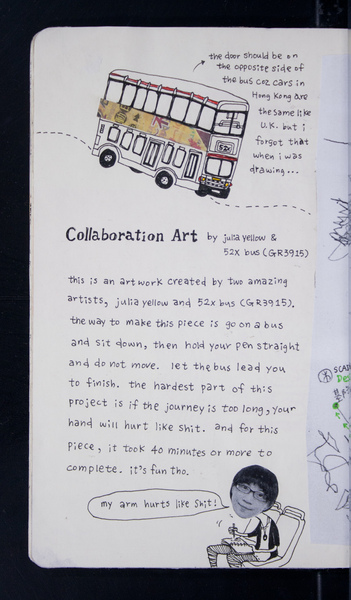 the door should be on
the opposite side of
the bus coz cars in
Hong Kong are
the same like
U.K. but i
forgot that
when i was
drawing...
52X
Collaboration Art by julia yellow &
52x bus (GR3915)
this is an artwork created by two amazing
artists, julia yellow and 52x bus (GR3915).
the way to make this piece is go on a bus
and sit down, then hold your pen straight
and do not move. let the bus lead you
to finish. the hardest part of this
project is if the journey is too long, your
hand will hurt like shit. and for this
piece, it took 40 minutes or more to
complete. it's fun tho.
my arm hurts like shit!